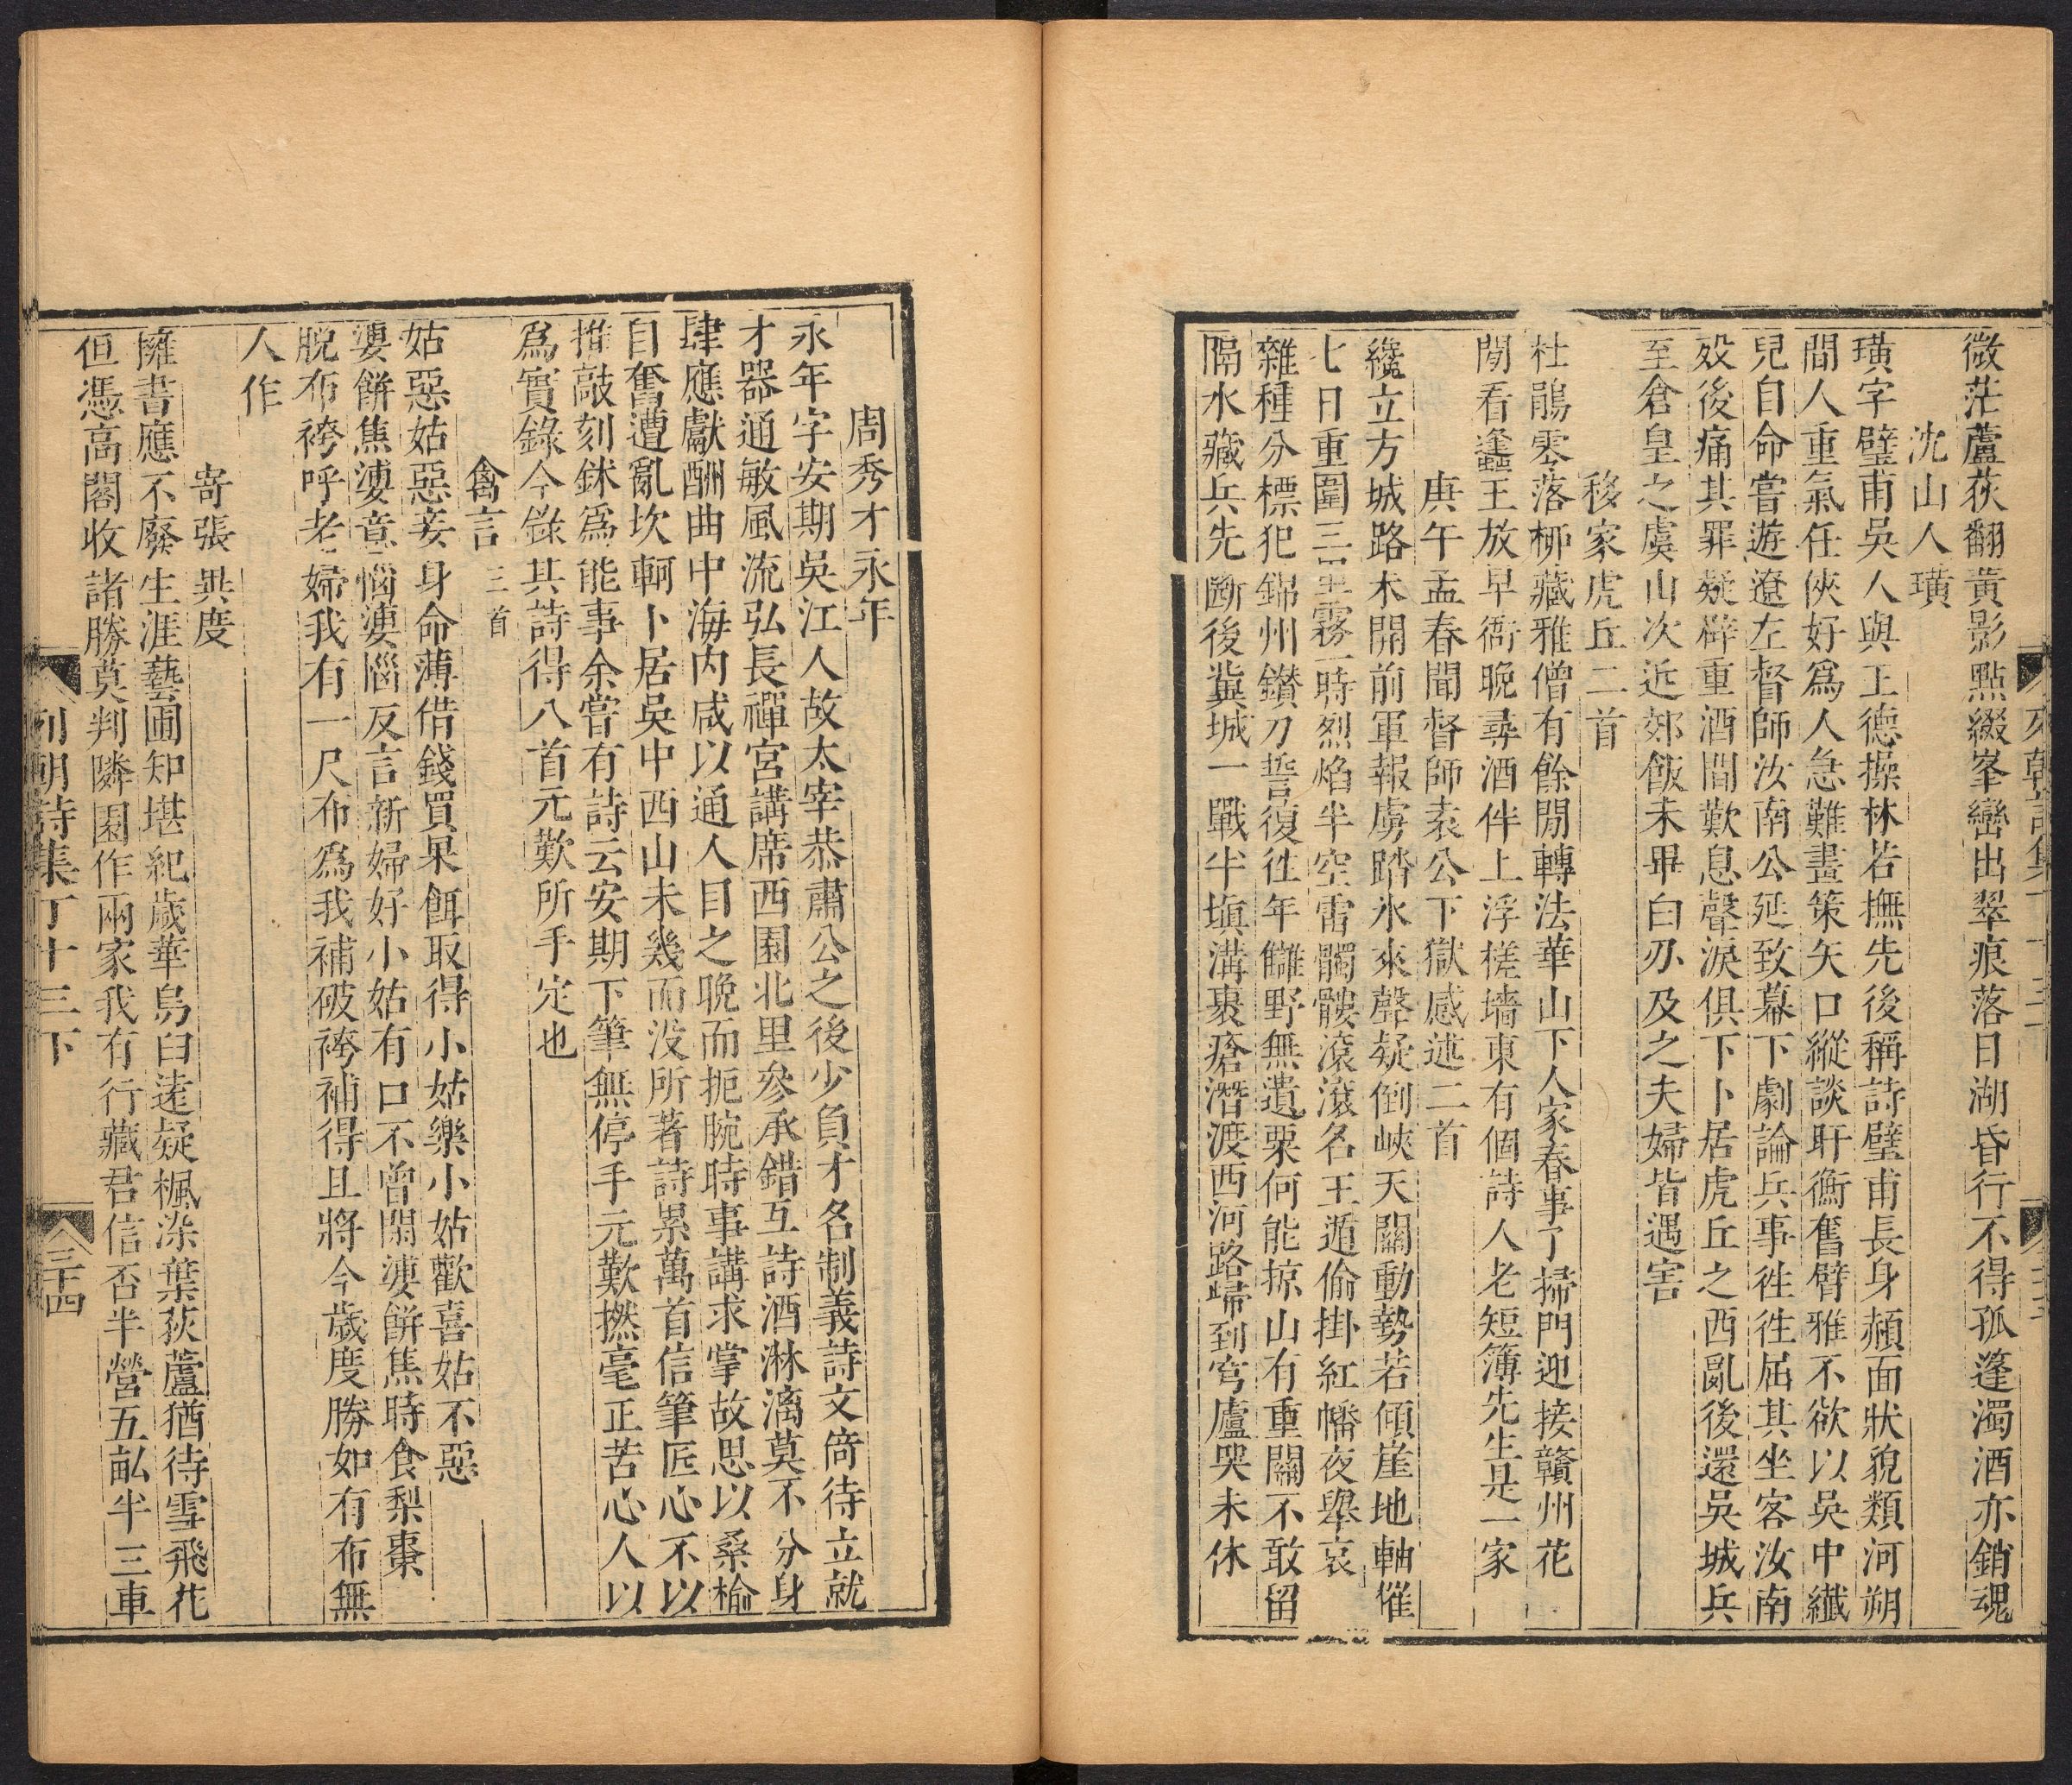 微茫蘆荻翻黃影點綴峯巒出翠痕落日湖昏行不得孤篷濁酒亦銷魂
沈山人璜
璜字璧甫吳人與王德操林若撫先後稱詩璧甫長身頳面狀貌類河朔
間人重氣任俠好爲人急難畫策矢口縱談盱衡奮臂雅不欲以吳中纖
兒自命嘗遊遼左督師汝南公延致幕下劇論兵事徃徃屈其坐客汝南
歿後痛其罪疑辟重酒間歎息聲淚俱下卜居虎丘之西亂後還吳城兵
至倉皇之虞山次近郊飯未畢白刃及之夫婦皆遇害
移家虎丘二首
杜鵑零落柳藏雅僧有餘閒轉法華山下人家春事了掃門迎接贛州花
閒看蠭王放早衙晚尋酒伴上浮槎墻東有個詩人老短簿先生是一家
庚午孟春聞督師袁公下獄感述二首
纔立方城路未開前軍報虜踏氷來聲疑倒峽天關動勢若傾崖地軸催
七日重圍三里霧一時烈焰半空雷髑髏滾滾名王遁偷掛紅幡夜舉哀
雜種分標犯錦州鑽刀誓復徃年讎野無遺粟何能掠山有重關不敢留
隔水藏兵先斷後冀城一戰半塡溝裹瘡潛渡西河路歸到穹廬哭未休
列朝詩集丁十三下
周秀才永年
永年字安期吳江人故太宰恭肅公之後少負才名制義詩文倚待立就
才器通敏風流弘長禪宮講席西園北里參承錯互詩酒淋漓莫不分身
肆應獻酬曲中海內咸以通人目之晚而扼腕時事講求掌故思以桑榆
自奮遭亂坎軻卜居吳中西山未幾而没所著詩累萬首信筆匠心不以
推敲刻鉥爲能事余嘗有詩云安期下筆無停手元歎撚毫正苦心人以
爲實錄今錄其詩得八首元歎所手定也
禽言三首
姑惡姑惡妾身命薄借錢買果餌取得小姑樂小姑歡喜姑不惡
婆餅焦婆意惱婆惱反言新婦好小姑有口不曾閑婆餅焦時食梨棗
脫布袴呼老婦我有一尺布爲我補破袴補得且將今歲度勝如有布無
人作
寄張異度
擁書應不廢生涯藝圃知堪紀歲華烏臼遠疑楓染葉荻蘆猶待雪飛花
但憑高閣收諸勝莫判隣園作兩家我有行藏君信否半營五畝半三車
列朝詩集丁十三下
三十四